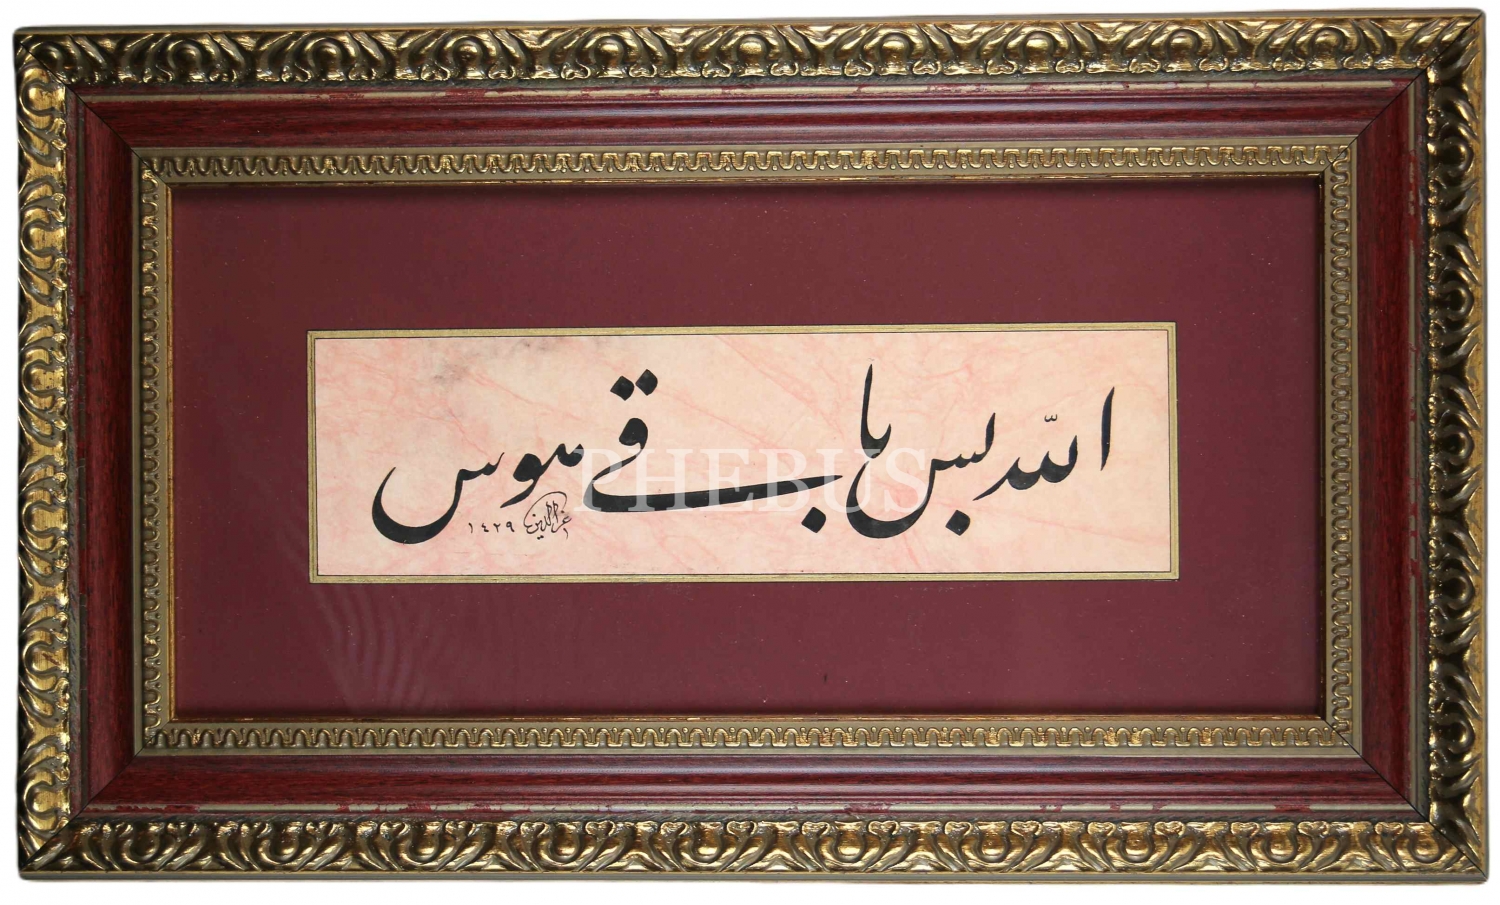 الله بس باقی هوس
عزالدين ١٤٢٩
PHEBUS